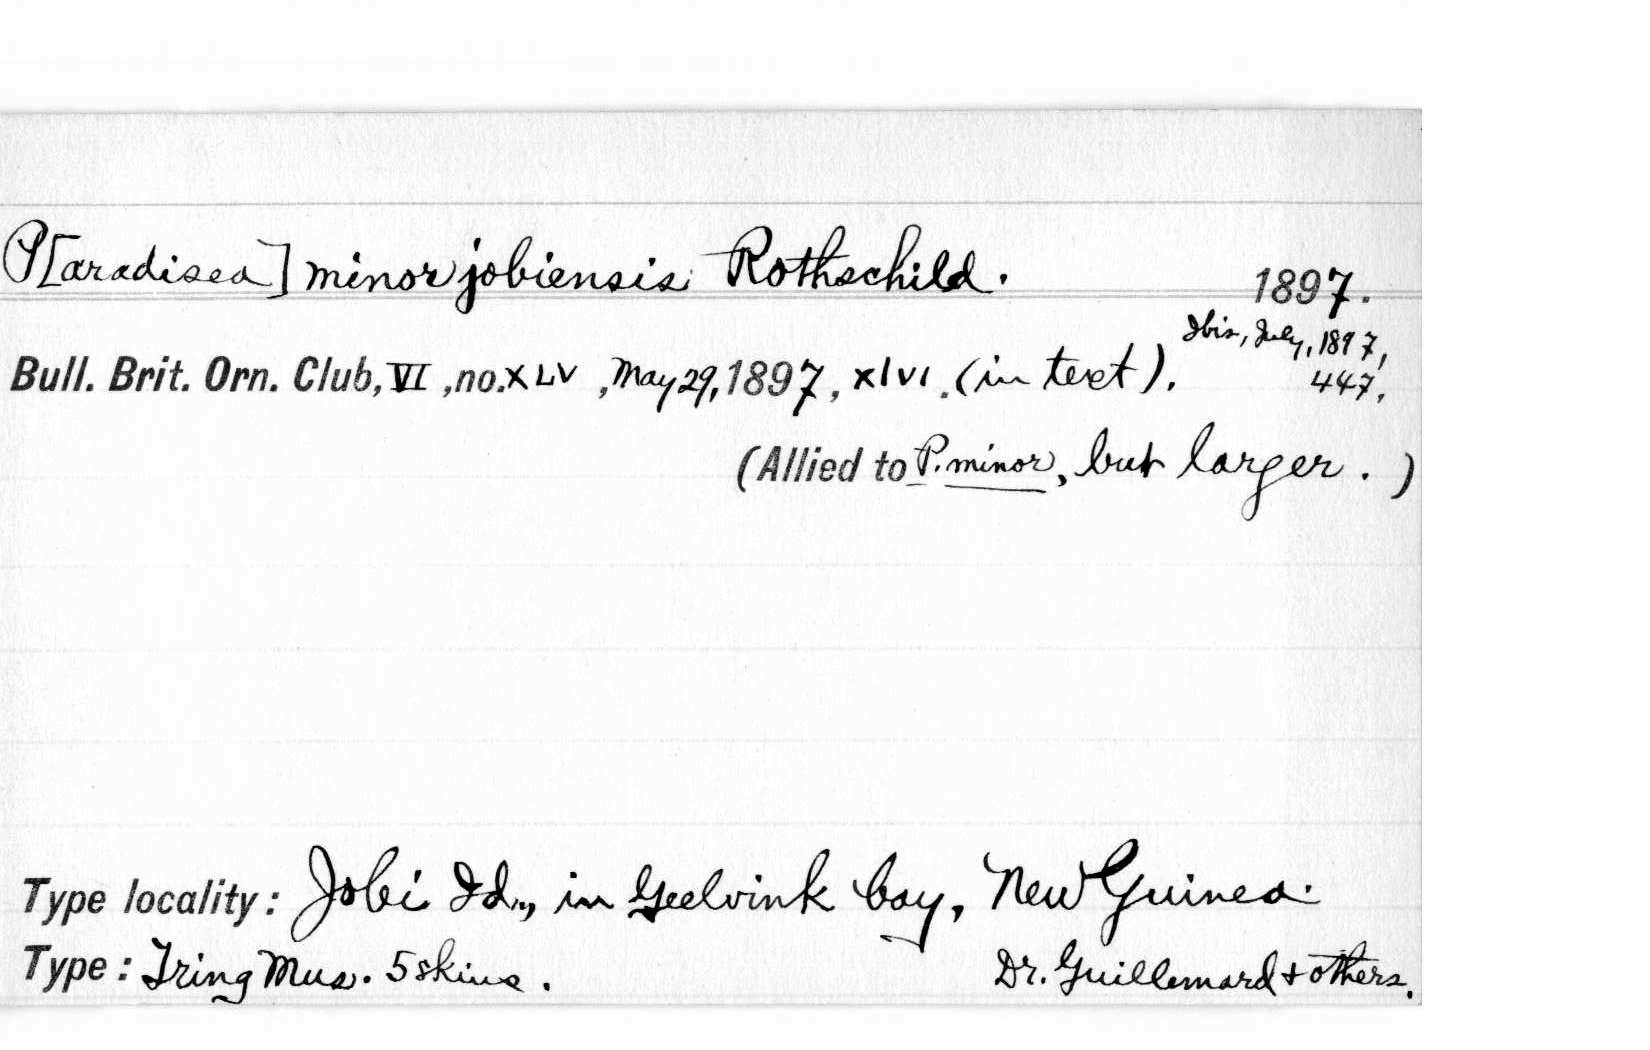 P[aradisea] minor jobiensis Rothschild. 1897.
Ibis, July, 1897,
Bull. Brit. Orn. Club, VI, no. XLV, May 29, 1897, xlvi. (in text). 447,
(Allied to P. minor, but larger.)
Type locality: Jobi Id., in Geelvink bay, New Guinea.
Type: Tring Mus. 5 skins. Dr. Guillemard & others.